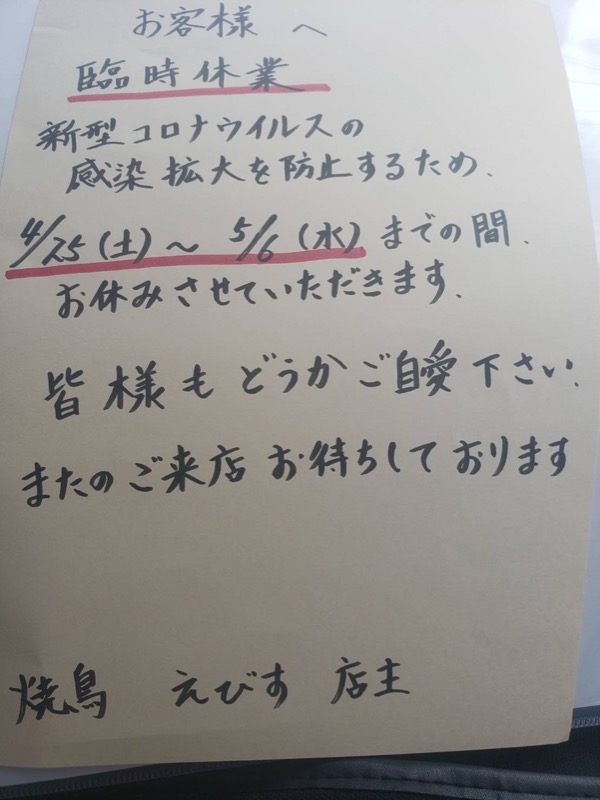 お客様へ
臨時休業
新型コロナウイルスの
感染拡大を防止するため、
4/25(土)～5/6(水)までの間、
お休みさせていただきます、
皆様もどうかご自愛下さい、
またのご来店お待ちしております
焼鳥 えびす 店主